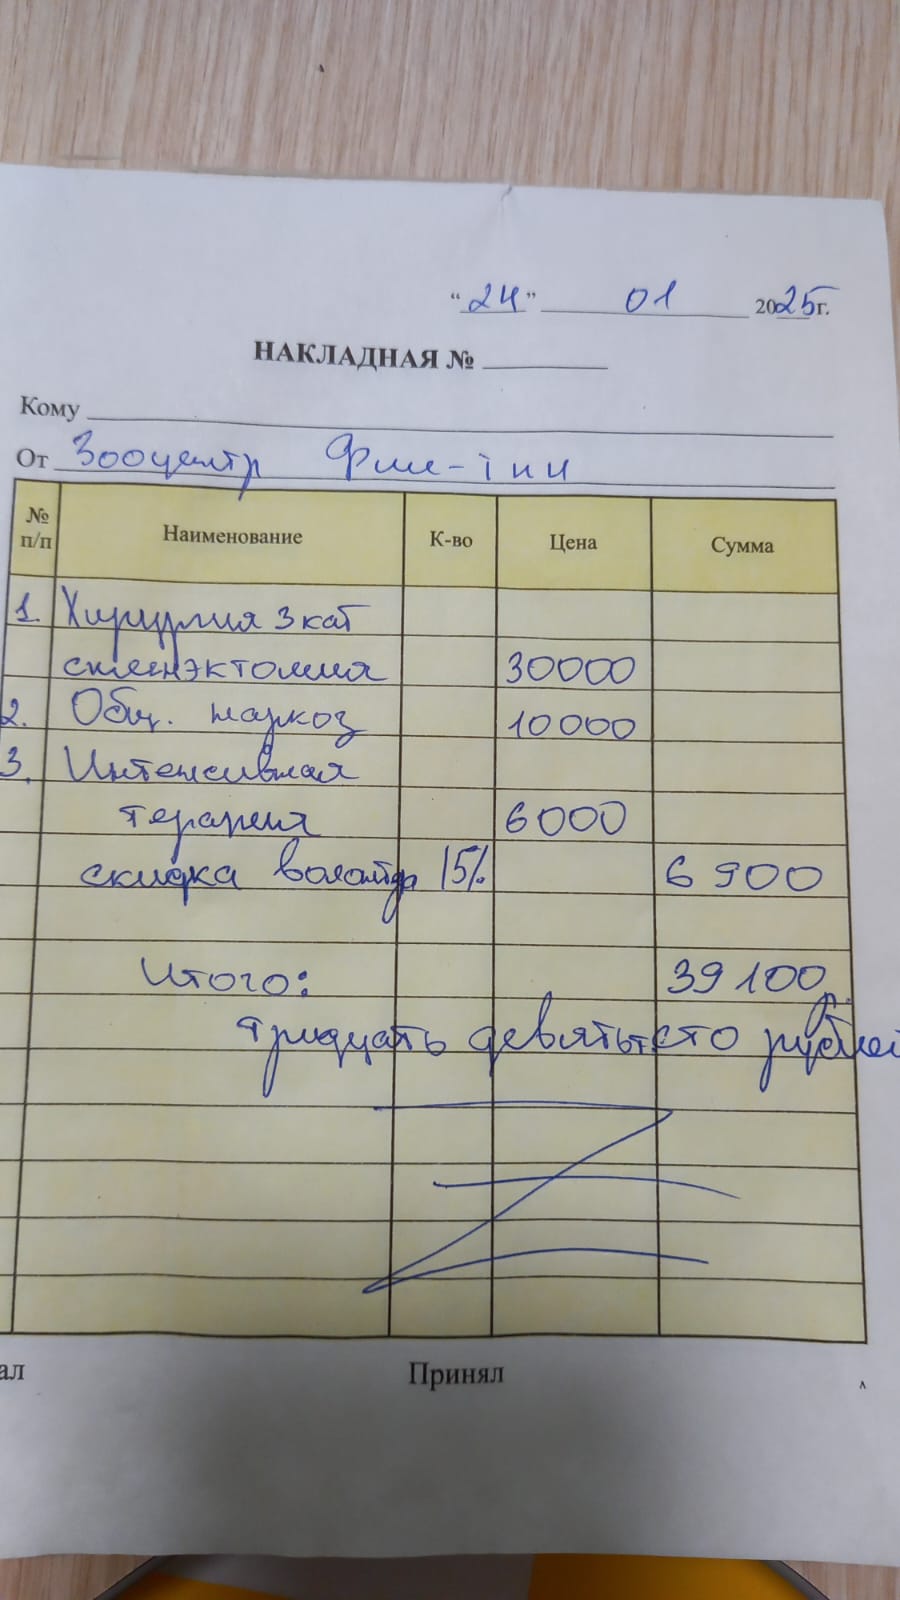 “24” 01 2025г.
НАКЛАДНАЯ №
Кому
От Зооцентр
№ п/п Наименование К-во Цена Сумма
1. Хирургия 3 кат
спленэктомия 30000
2. Общ. наркоз 10000
3. Интенсивная
терапия 6000
скидка 15% 6900
Итого: 39100 р.
тридцать девятьтсто рублей
ал Принял